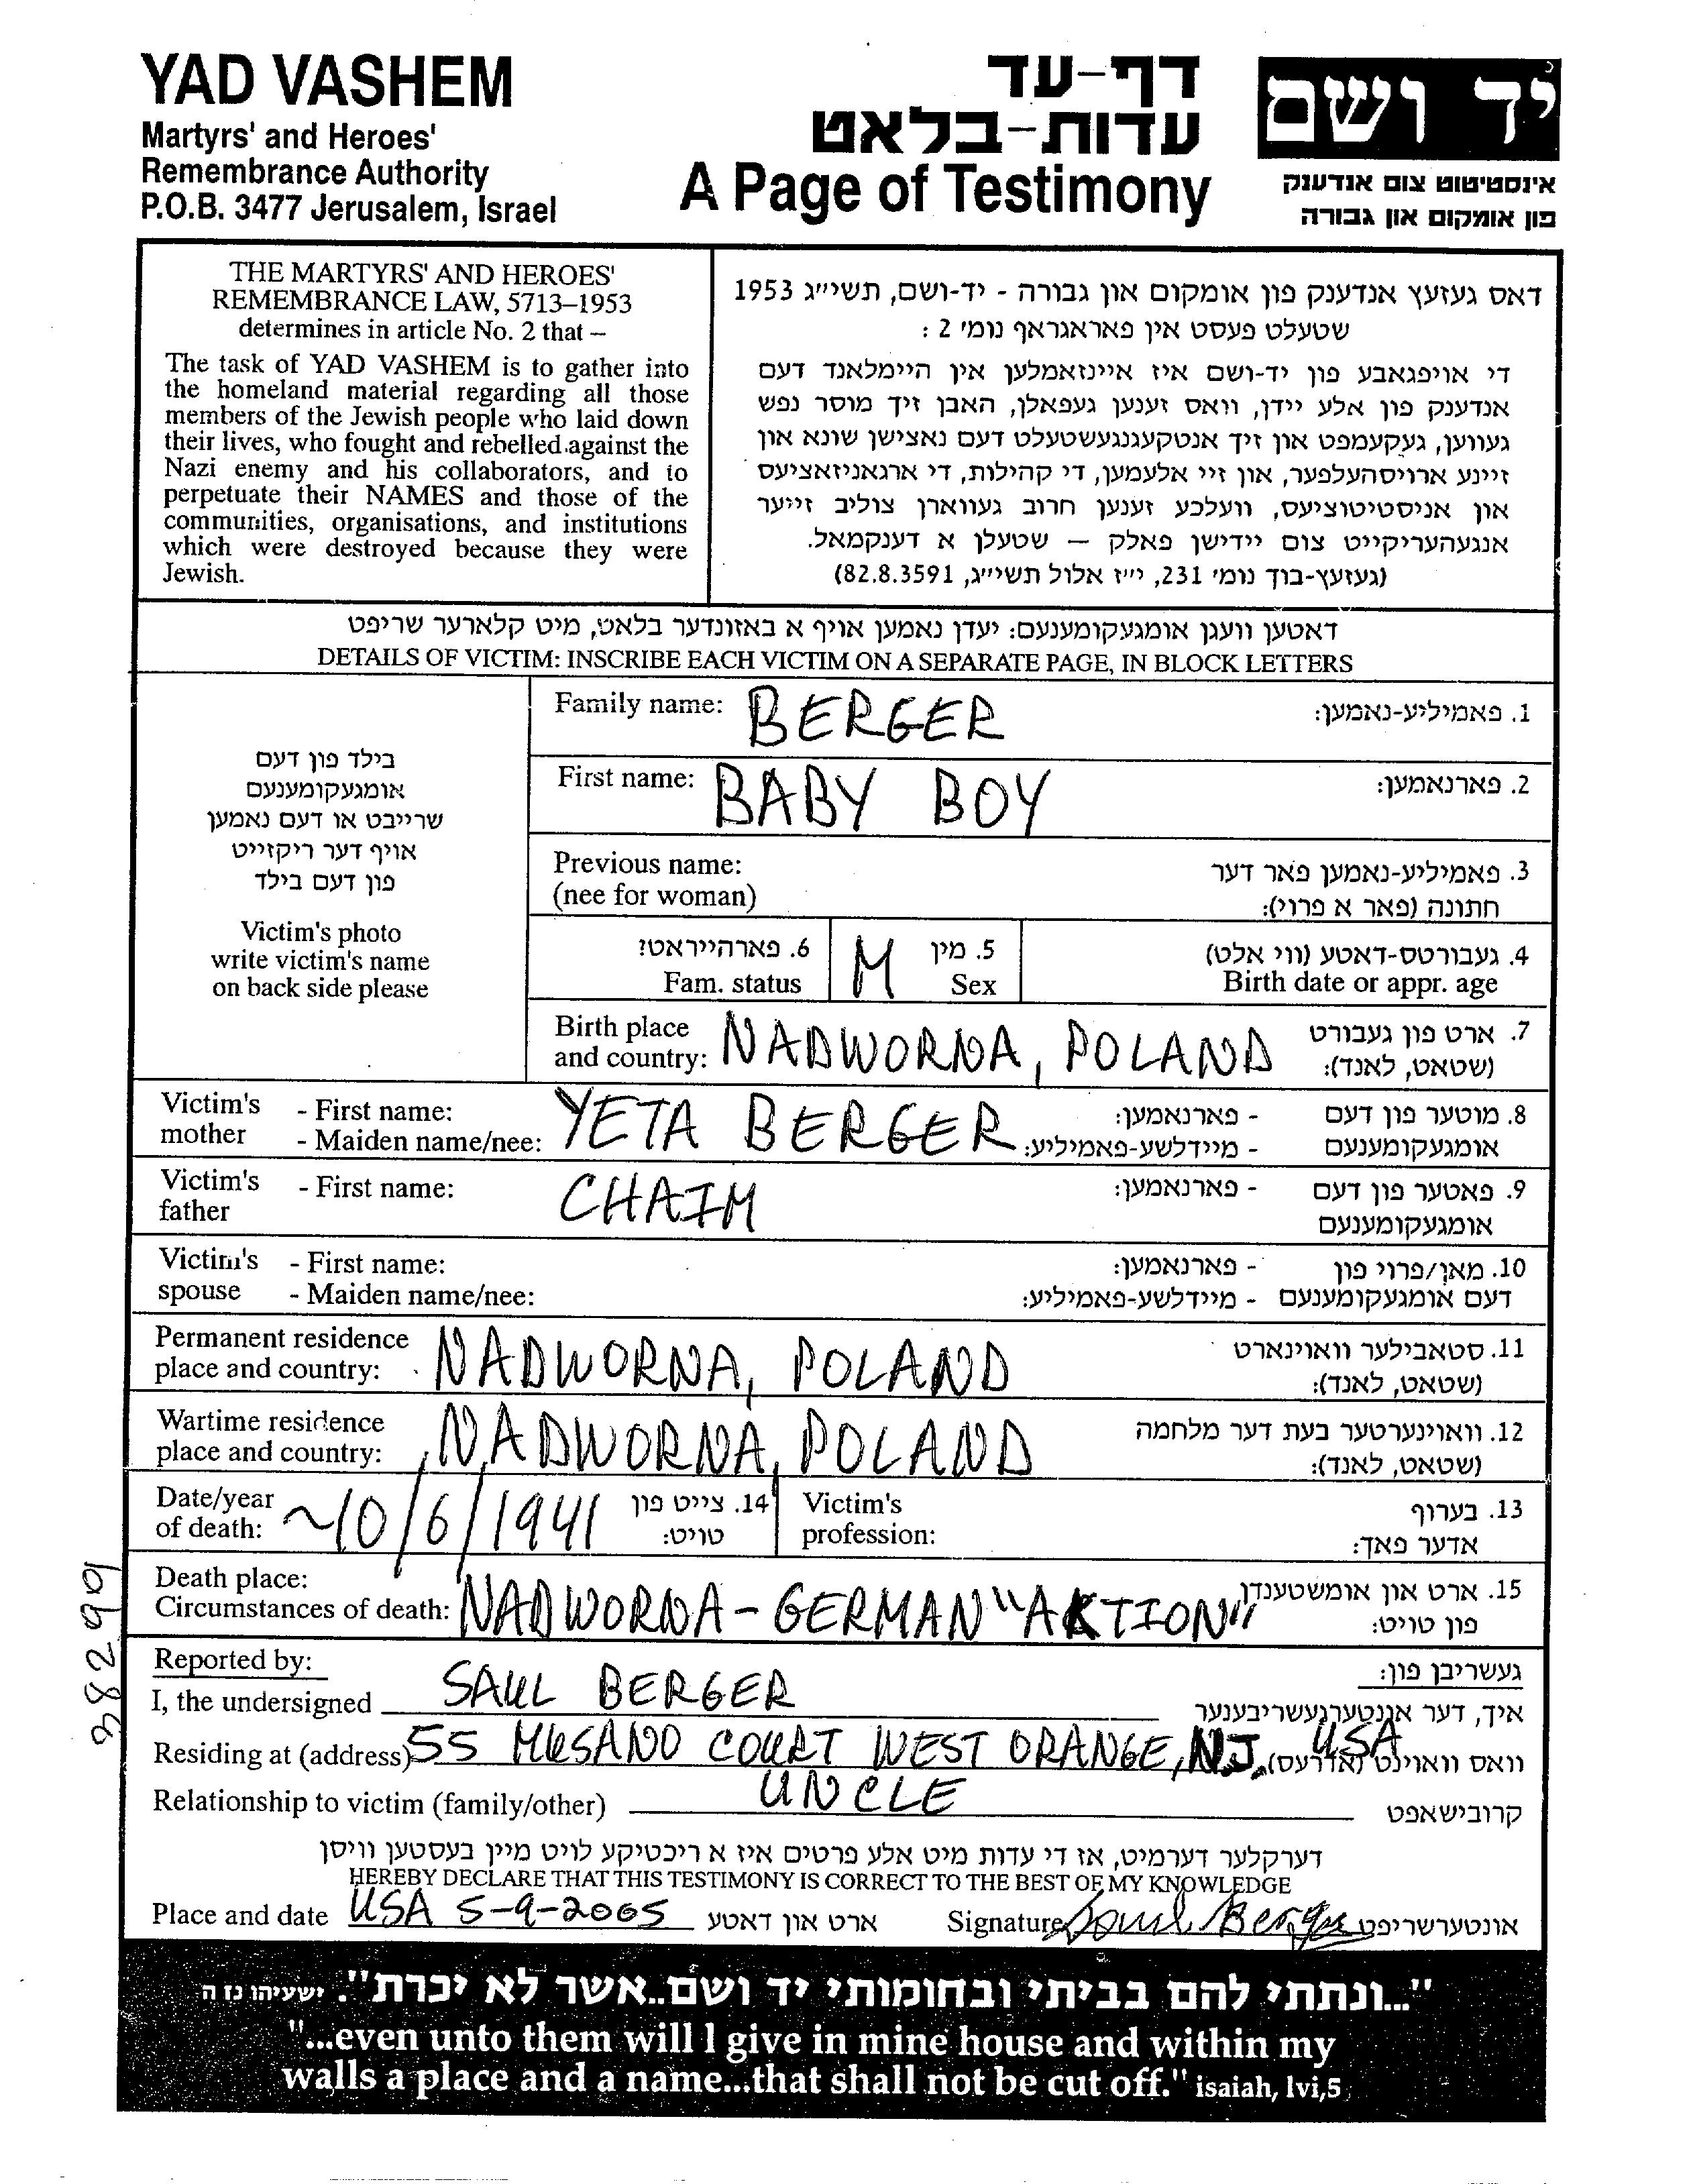 YAD VASHEM
Martyrs' and Heroes'
Remembrance Authority
P.O.B. 3477 Jerusalem, Israel
דף-עד
עדות-בלאט
A Page of Testimony
יד ושם
אינסטיטוט צום אנדענק
פון אומקום און גבורה
THE MARTYRS' AND HEROES'
REMEMBRANCE LAW, 5713–1953
determines in article No. 2 that –
The task of YAD VASHEM is to gather into
the homeland material regarding all those
members of the Jewish people who laid down
their lives, who fought and rebelled against the
Nazi enemy and his collaborators, and to
perpetuate their NAMES and those of the
communities, organisations, and institutions
which were destroyed because they were
Jewish.
דאס געזעץ אנדענק פון אומקום און גבורה - יד-ושם, תשי״ג 1953
שטעלט פעסט אין פאראגראף נומ׳ 2 :
די אויפגאבע פון יד-ושם איז איינזאמלען אין היימלאנד דעם
אנדענק פון אלע יידן, וואס זענען געפאלן, האבן זיך מוסר נפש
געווען, געקעמפט און זיך אנטקעגנגעשטעלט דעם נאצישן שונא און
זיינע ארויסהעלפער, און זיי אלעמען, די קהילות, די ארגאניזאציעס
און אניסטיטוציעס, וועלכע זענען חרוב געווארן צוליב זייער
אנגעהעריקייט צום יידישן פאלק – שטעלן א דענקמאל.
(געזעץ-בוך נומ׳ 231, י״ז אלול תשי״ג, 82.8.3591)
דאטען וועגן אומגעקומענעם: יעדן נאמען אויף א באזונדער בלאט, מיט קלארער שריפט
DETAILS OF VICTIM: INSCRIBE EACH VICTIM ON A SEPARATE PAGE, IN BLOCK LETTERS
בילד פון דעם
אומגעקומענעם
שרייבט או דעם נאמען
אויף דער ריקזייט
פון דעם בילד
Victim's photo
write victim's name
on back side please
Family name: BERGER 1. פאמיליע-נאמען:
First name: BABY BOY 2. פארנאמען:
Previous name: 3. פאמיליע-נאמען פאר דער
(nee for woman) חתונה (פאר א פרוי):
6. פארהייראט? M 5. מין 4. געבורטס-דאטע (ווי אלט)
Fam. status Sex Birth date or appr. age
Birth place NADWORNA, POLAND 7. ארט פון געבורט
and country: (שטאט, לאנד):
Victim's - First name: YETA BERGER - פארנאמען: 8. מוטער פון דעם
mother - Maiden name/nee: - מיידלשע-פאמיליע: אומגעקומענעם
Victim's - First name: CHAIM - פארנאמען: 9. פאטער פון דעם
father אומגעקומענעם
Victim's - First name: - פארנאמען: 10. מאן/פרוי פון
spouse - Maiden name/nee: - מיידלשע-פאמיליע: דעם אומגעקומענעם
Permanent residence NADWORNA, POLAND 11. סטאבילער וואוינארט
place and country: (שטאט, לאנד):
Wartime residence NADWORNA, POLAND 12. וואוינערטער בעת דער מלחמה
place and country: (שטאט, לאנד):
Date/year ~10/6/1941 14. צייט פון Victim's 13. בערוף
of death: טויט: profession: אדער פאך:
Death place: 15. ארט און אומשטענדן
Circumstances of death: NADWORNA - GERMAN "AKTION" פון טויט:
Reported by: געשריבן פון:
I, the undersigned SAUL BERGER איך, דער אונטערגעשריבענער
Residing at (address) 55 MUSANO COURT WEST ORANGE, N.J. USA וואס וואוינט (אדרעס)
Relationship to victim (family/other) UNCLE קרובישאפט
דערקלער דערמיט, אז די עדות מיט אלע פרטים איז א ריכטיקע לויט מיין בעסטען וויסן
HEREBY DECLARE THAT THIS TESTIMONY IS CORRECT TO THE BEST OF MY KNOWLEDGE
Place and date USA 5-9-2005 ארט און דאטע Signature Saul Berger אונטערשריפט
"...ונתתי להם בביתי ובחומותי יד ושם..אשר לא יכרת". ישעיהו נז ה
"...even unto them will I give in mine house and within my
walls a place and a name...that shall not be cut off." isaiah, lvi,5